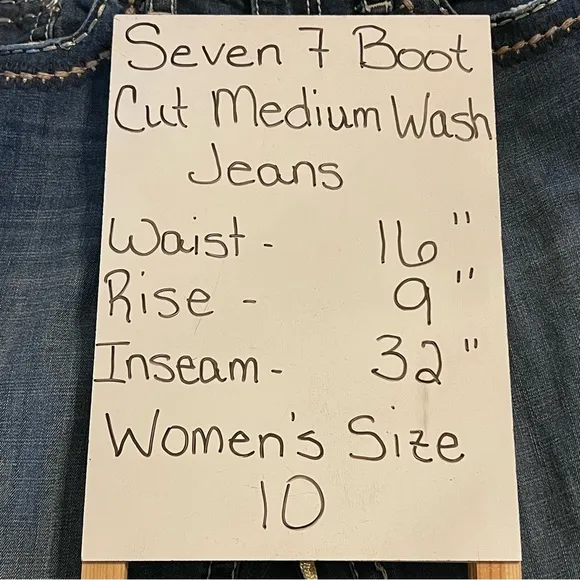 Seven 7 Boot
Cut Medium Wash
Jeans
Waist - 16"
Rise - 9"
Inseam - 32"
Women's Size
10